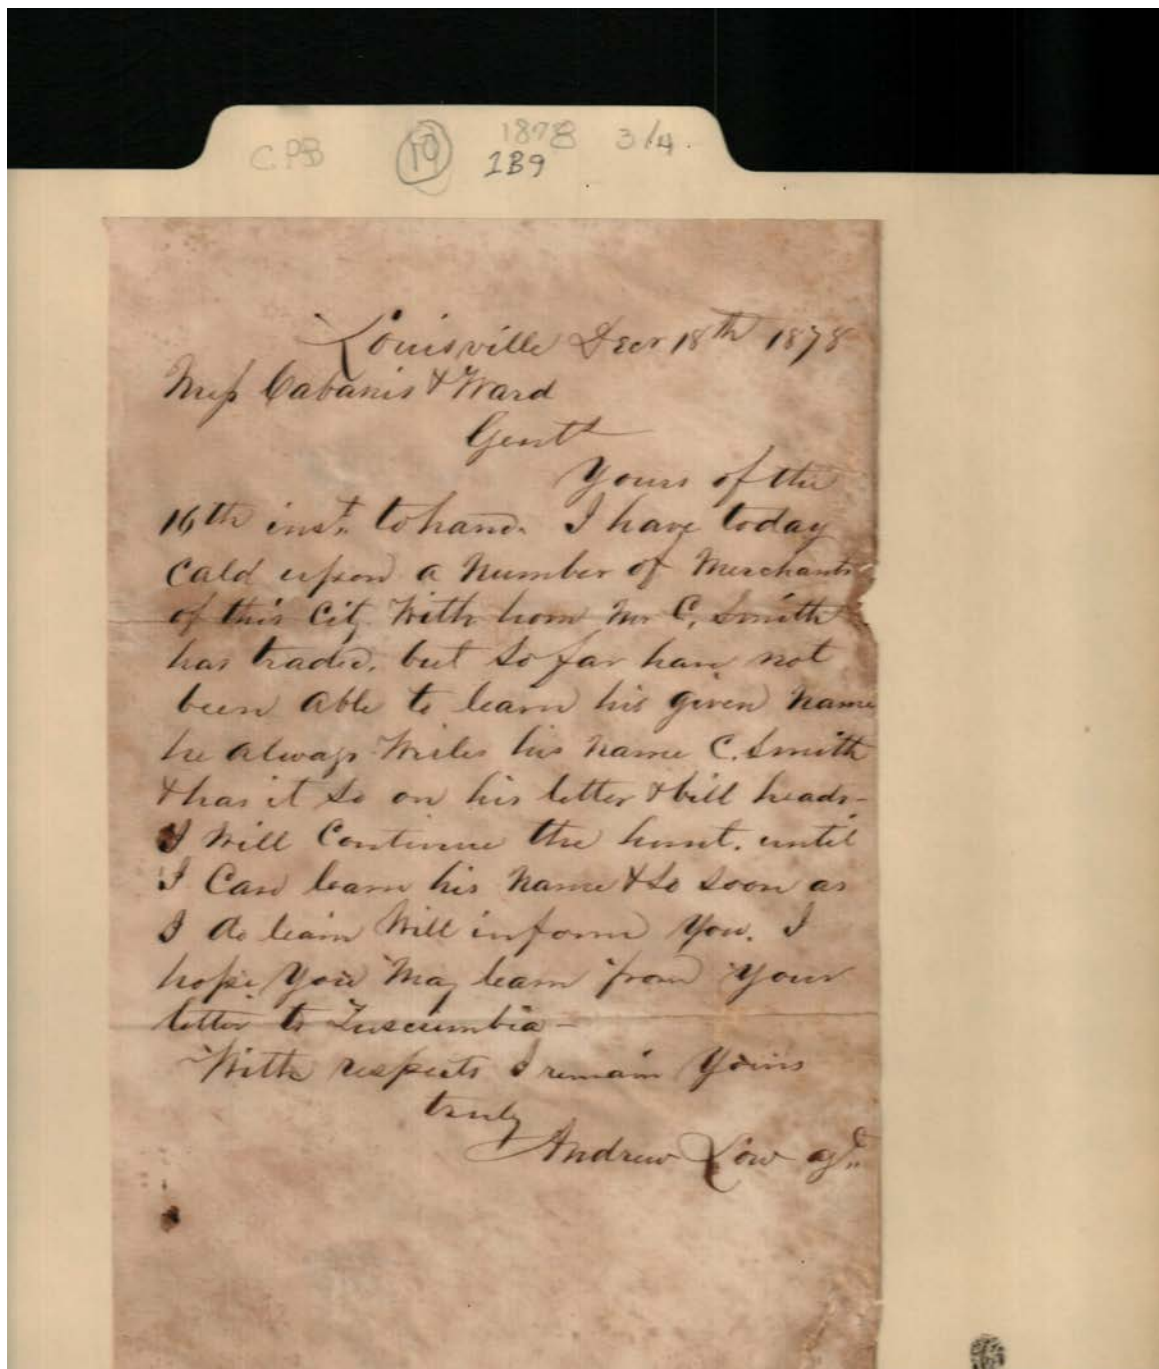 C.P.B 19 1878 3/4.
1B9
Louisville Decr 18th 1878
Mess Cabanis & Ward
Gents
Yours of the
16th inst. to hand. I have today
Cald upon a Number of Merchants
of this City With hom Mr C. Smith
has traded, but so far have not
been Able to learn his given Name
he Always Writes his Name C. Smith
& has it so on his letter & bill heads-
I Will Continue the hunt, until
I Can learn his Name & so soon as
I do learn Will inform You. I
hope You May learn from Your
letter to Tuscumbia -
With respects I remain Yours
truly
Andrew Low agt.